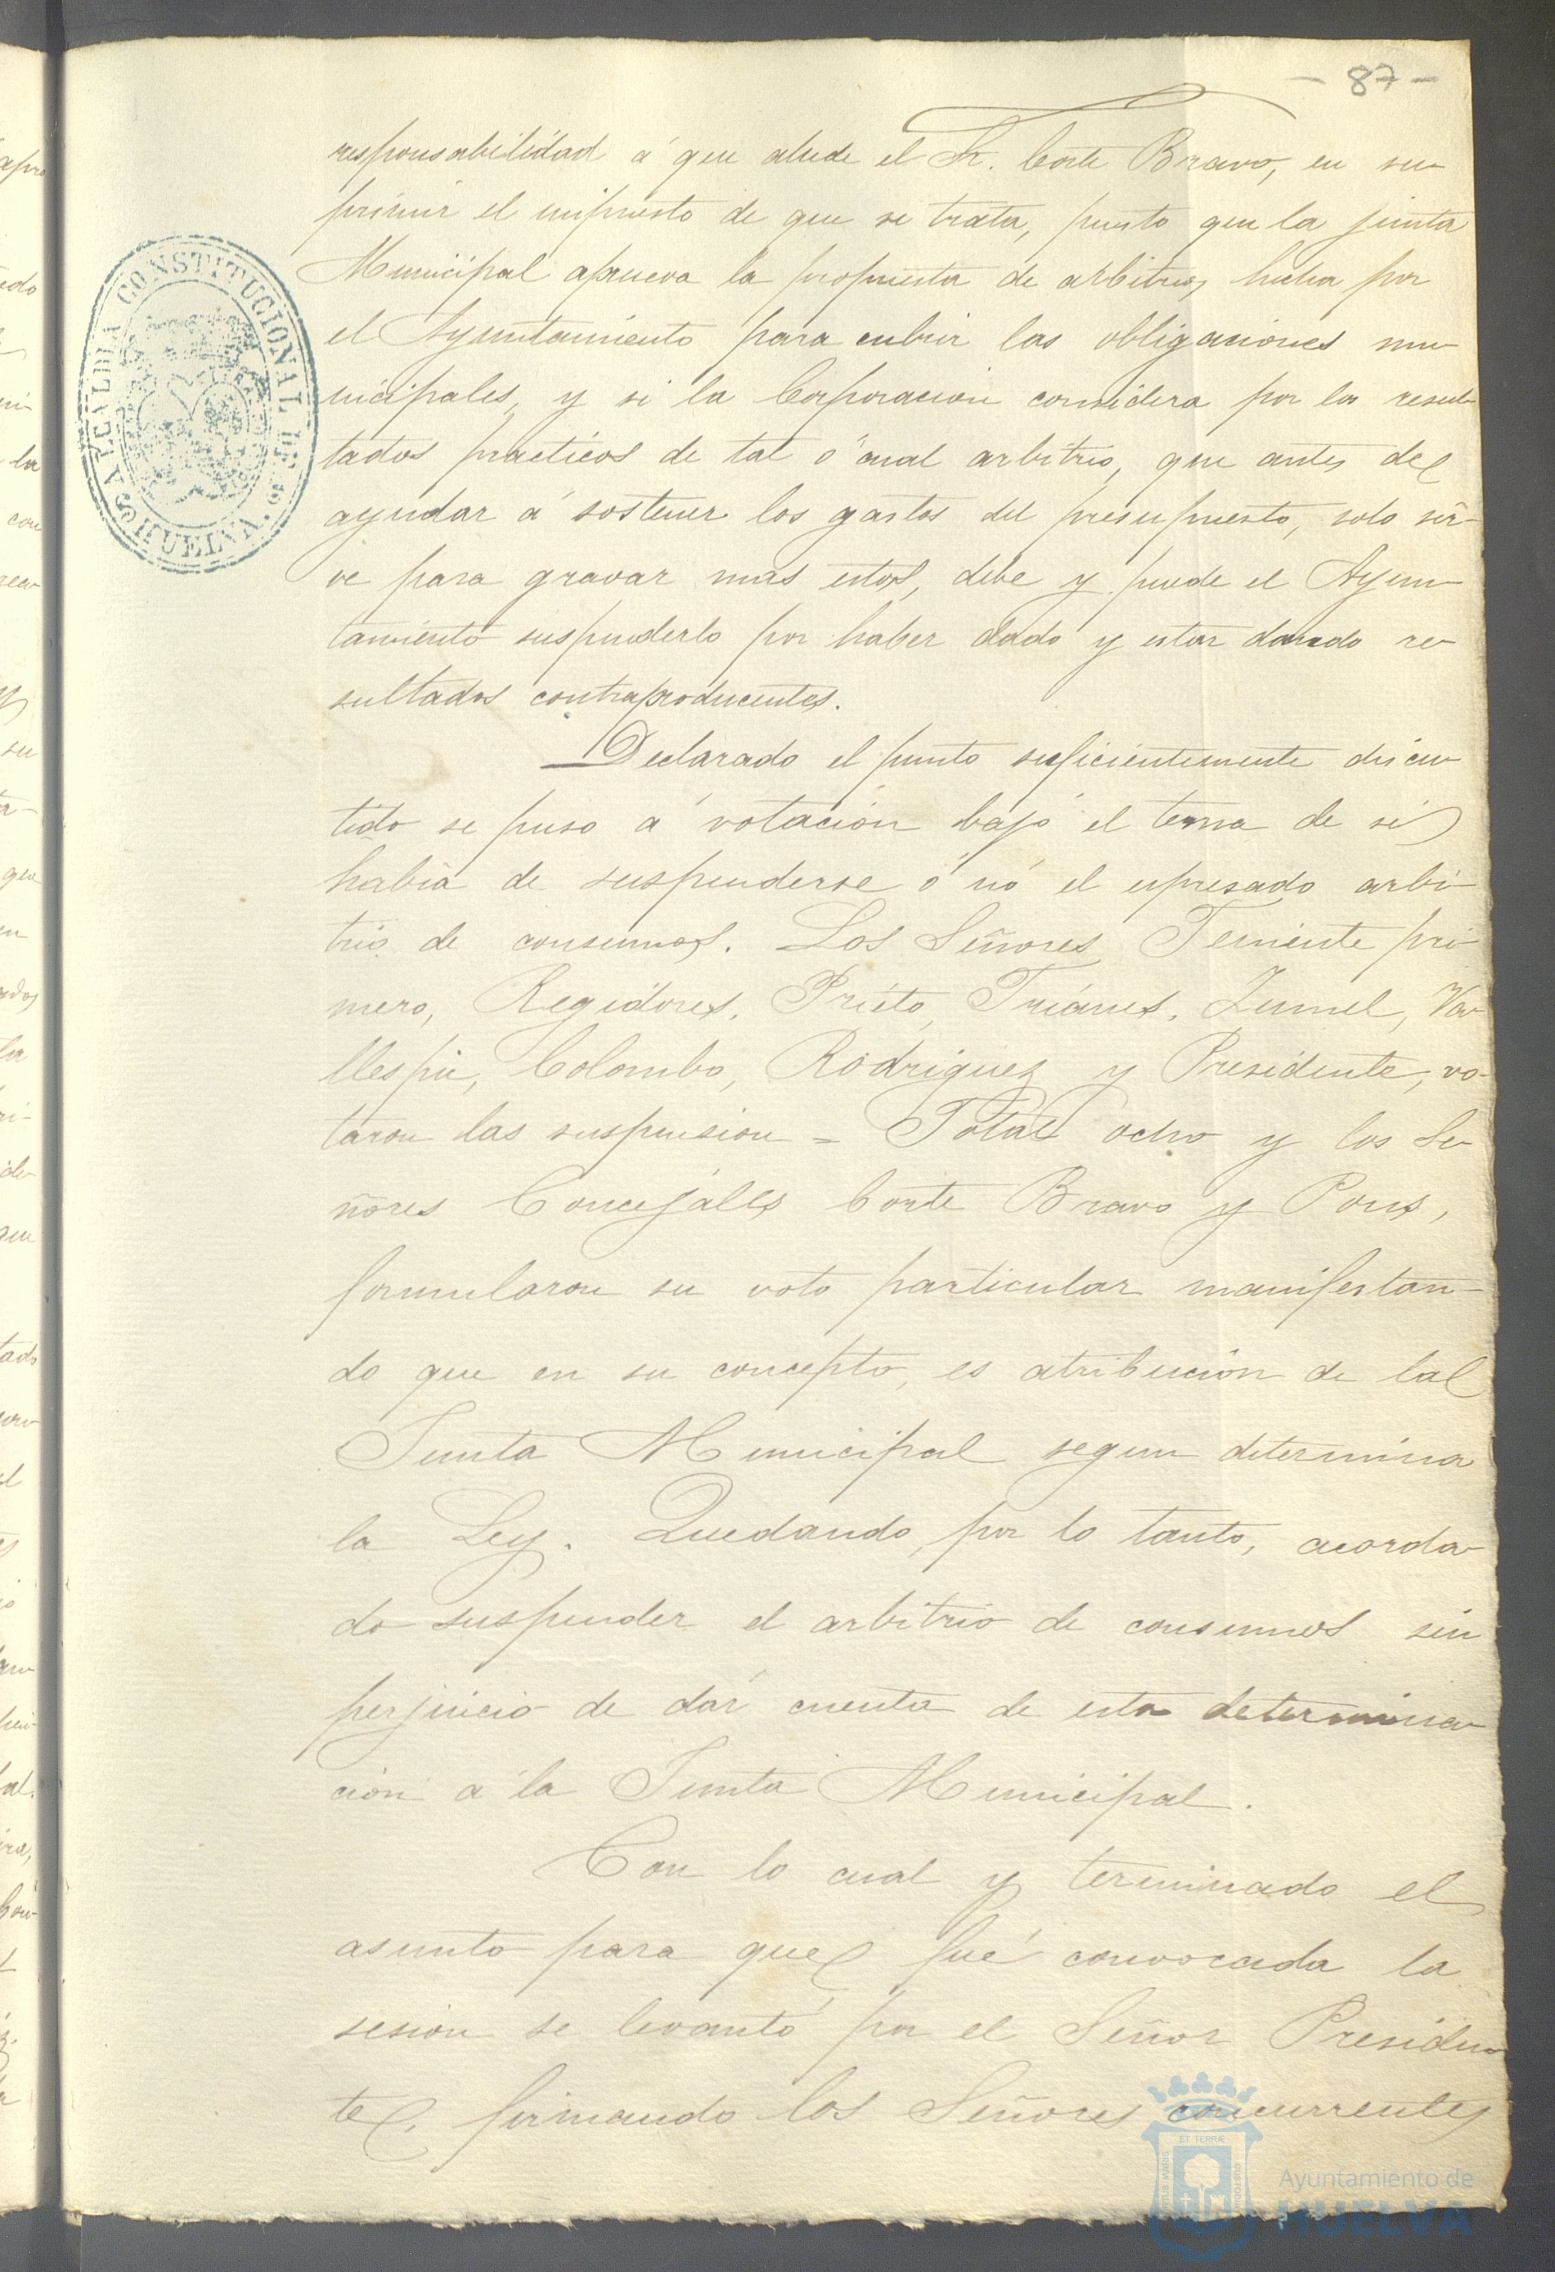 - 87 -
responsabilidad á que alude el Sr. Corte Bravo, en su
primir el impuesto de que se trata, puesto que la junta
Municipal aprueva la propuesta de arbitrios, hecha por
el Ayuntamiento para cubrir las obligaciones mu
nicipales, y si la Corporacion considera por los resul
tados practicos de tal ó cual arbitrio, que antes de
ayudar á sostener los gastos del presupuesto, solo sir-
ve para gravar mas estos, debe y puede el Ayun-
tamiento suspenderlo por haber dado y estar dando re
sultados contraproducentes.
Declarado el punto suficientemente discu
tido se puso á votación bajo el tema de si
habia de suspenderse ó nó el espresado arbi-
trio de consumos. Los Señores Teniente pri-
mero, Regidores, Prieto, Trianes, Zumel, Va
llespin, Colombo, Rodriguez y Presidente, vo-
taron las suspension = Total ocho y los Se
ñores Concejáles Corte Bravo y Pons,
formularon su voto particular manifestan-
do que en su concepto, es atribución de la
Junta Municipal segun determina
la Ley. Quedando, por lo tanto, acorda-
do suspender el arbitrio de consumos sin
perjuicio de dar cuenta de esta determina
ción á la Junta Municipal.
Con lo cual y terminado el
asunto para que fué convocada la
sesion se levantó por el Señor Presiden
te, firmando los Señores concurrentes
ALCALDIA CONSTITUCIONAL DE HUELVA
Ayuntamiento de
HUELVA